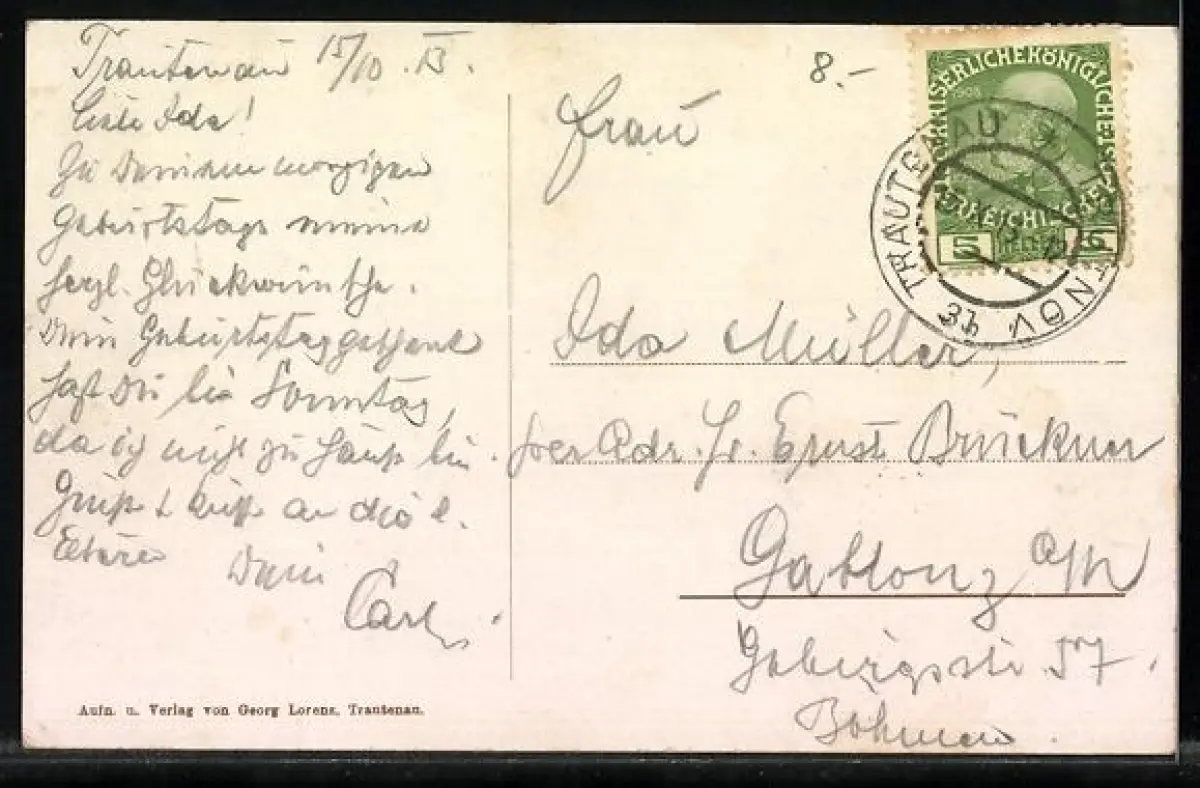 Trautenau 15/10. 13.
Liebe Ida!
Zu Deinem morgigen
Geburtstage meine
herzl. Glückwünsche.
Dein Geburtstaggeschenk
hast Du bis Sonntag,
da ich nicht zu Hause bin.
Grüße & Küsse an die l.
Eltern Dein
Carl
Aufn. u. Verlag von Georg Lorenz, Trautenau.
8.-
Frau
Ida Müller,
per Adr. Hr. Ernst Brückner
Gablonz a/N
Gebirgsstr. 57.
Böhmen.
KAISERLICHEKÖNIGLICHE
1908
ÖSTERREICHISCHE
5 5
TRAUTENAU
TRUTNOV
3b